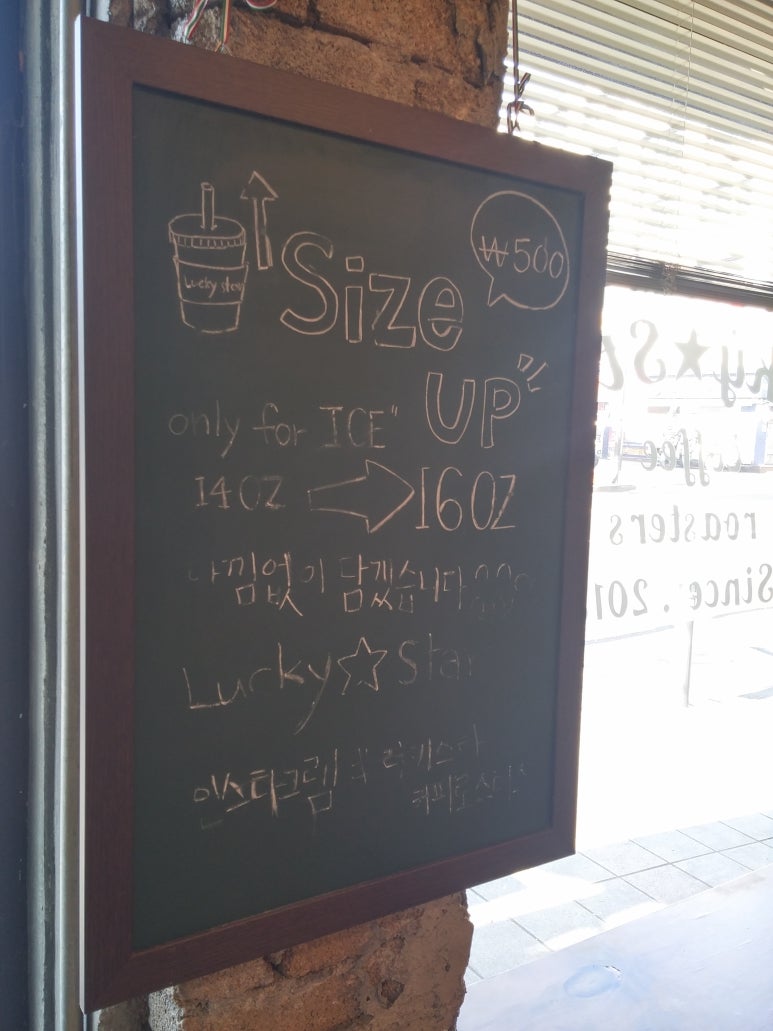 Lucky Star
₩500
Size
UP"
only for ICE"
14OZ ⇨ 16OZ
아낌없이 담겠습니다
Lucky☆Star
인스타그램 # 럭키스타
커피로스터스
ky★St
ffee
roasters
Since. 201